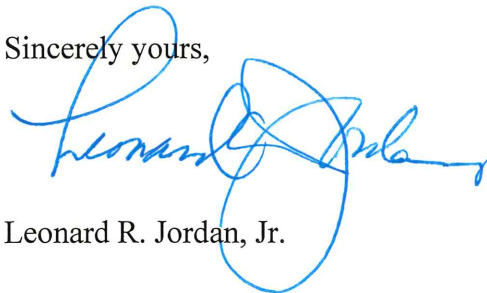 Sincerely yours,
Leonard Jordan
Leonard R. Jordan, Jr.